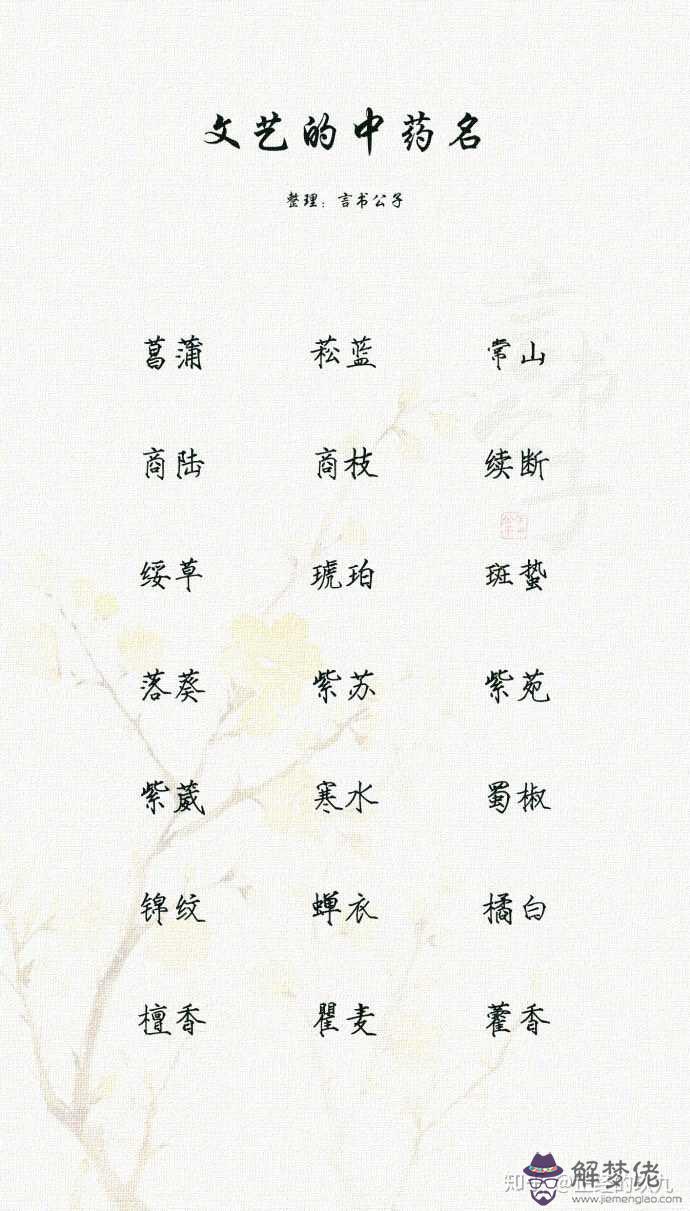 文艺的中药名
整理：言书公子
菖蒲 菘蓝 常山
商陆 商枝 续断
绥草 琥珀 斑蛰
落葵 紫苏 紫苑
紫葳 寒水 蜀椒
锦纹 蝉衣 橘白
檀香 瞿麦 藿香
言书公子
解梦佬
www.jiemenglao.com